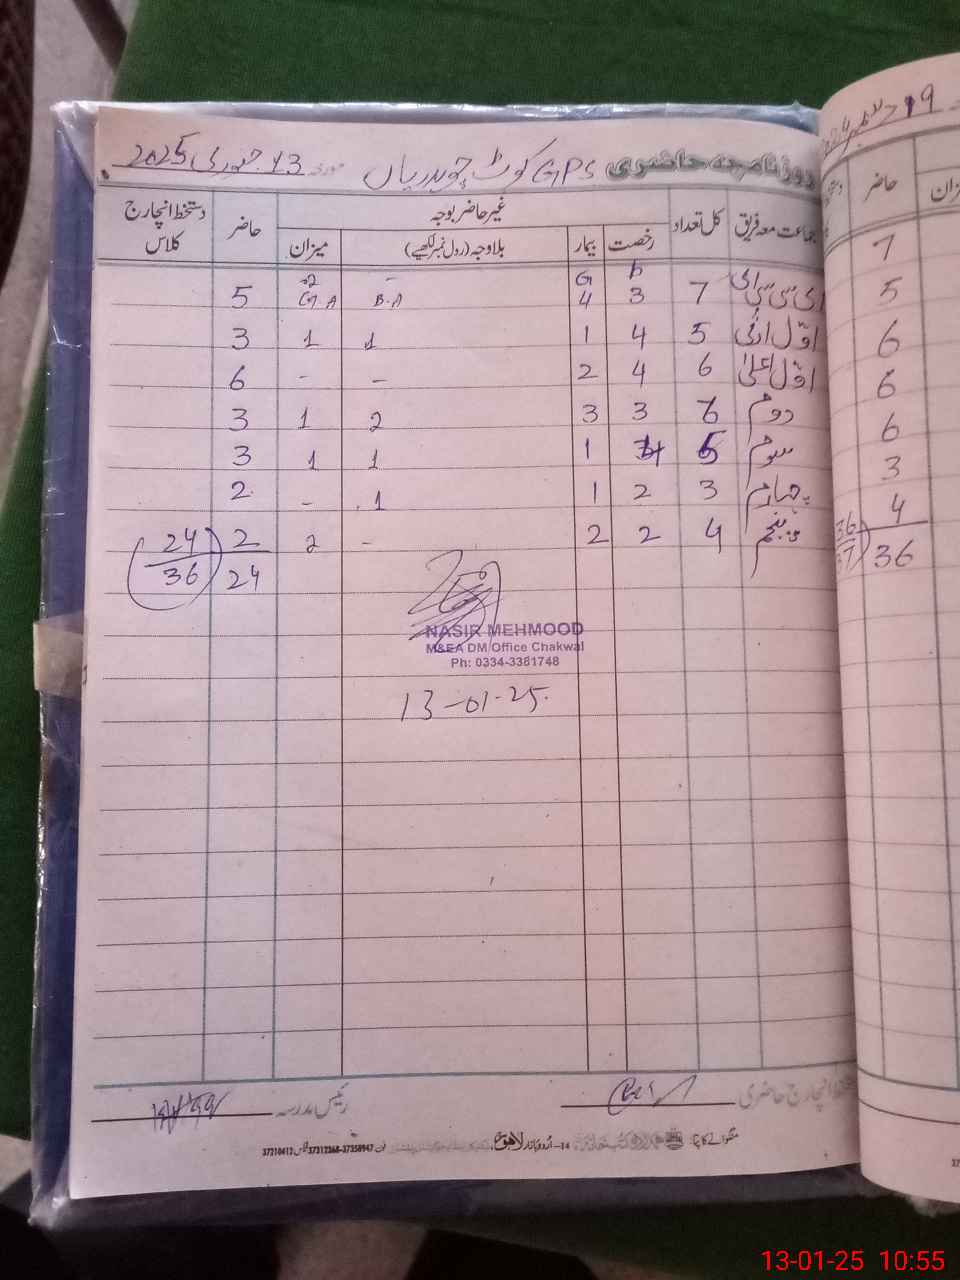 روزنامچہ حاضری GPS کوٹ چوہدریاں مورخہ 13 جنوری 2025
جماعت معہ فریق کل تعداد غیر حاضر بوجہ حاضر دستخط انچارج کلاس
رخصت بیمار بلاوجہ (رول نمبر لکھیے) میزان
b G - 2
ای سی سی ای 7 3 4 B.A G.A 5
اول ادنیٰ 5 4 1 1 1 3
اول اعلیٰ 6 4 2 - - 6
دوم 6 3 3 2 1 3
سوم 5 4 1 1 1 3
چہارم 3 2 1 1 - 2
پنجم 4 2 2 - 2 2 24
24 36
NASIR MEHMOOD
M&EA DM Office Chakwal
Ph: 0334-3381748
13-01-25
دستخط انچارج حاضری
رئیس مدرسہ
منگوانے کا پتہ
14-اردو بازار لاہور
فون 37312268-37358947 37210412
19 دسمبر 2024
حاضر
میزان
7
5
6
6
6
3
4
36
36
37
13-01-25 10:55